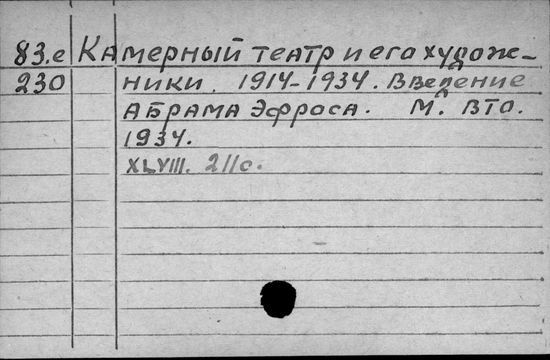 83.е Камерный театр и его худож-
230 ники. 1914-1934. Введение
Абрама Эфроса. М. ВТО.
1934.
XLVIII. 211с.